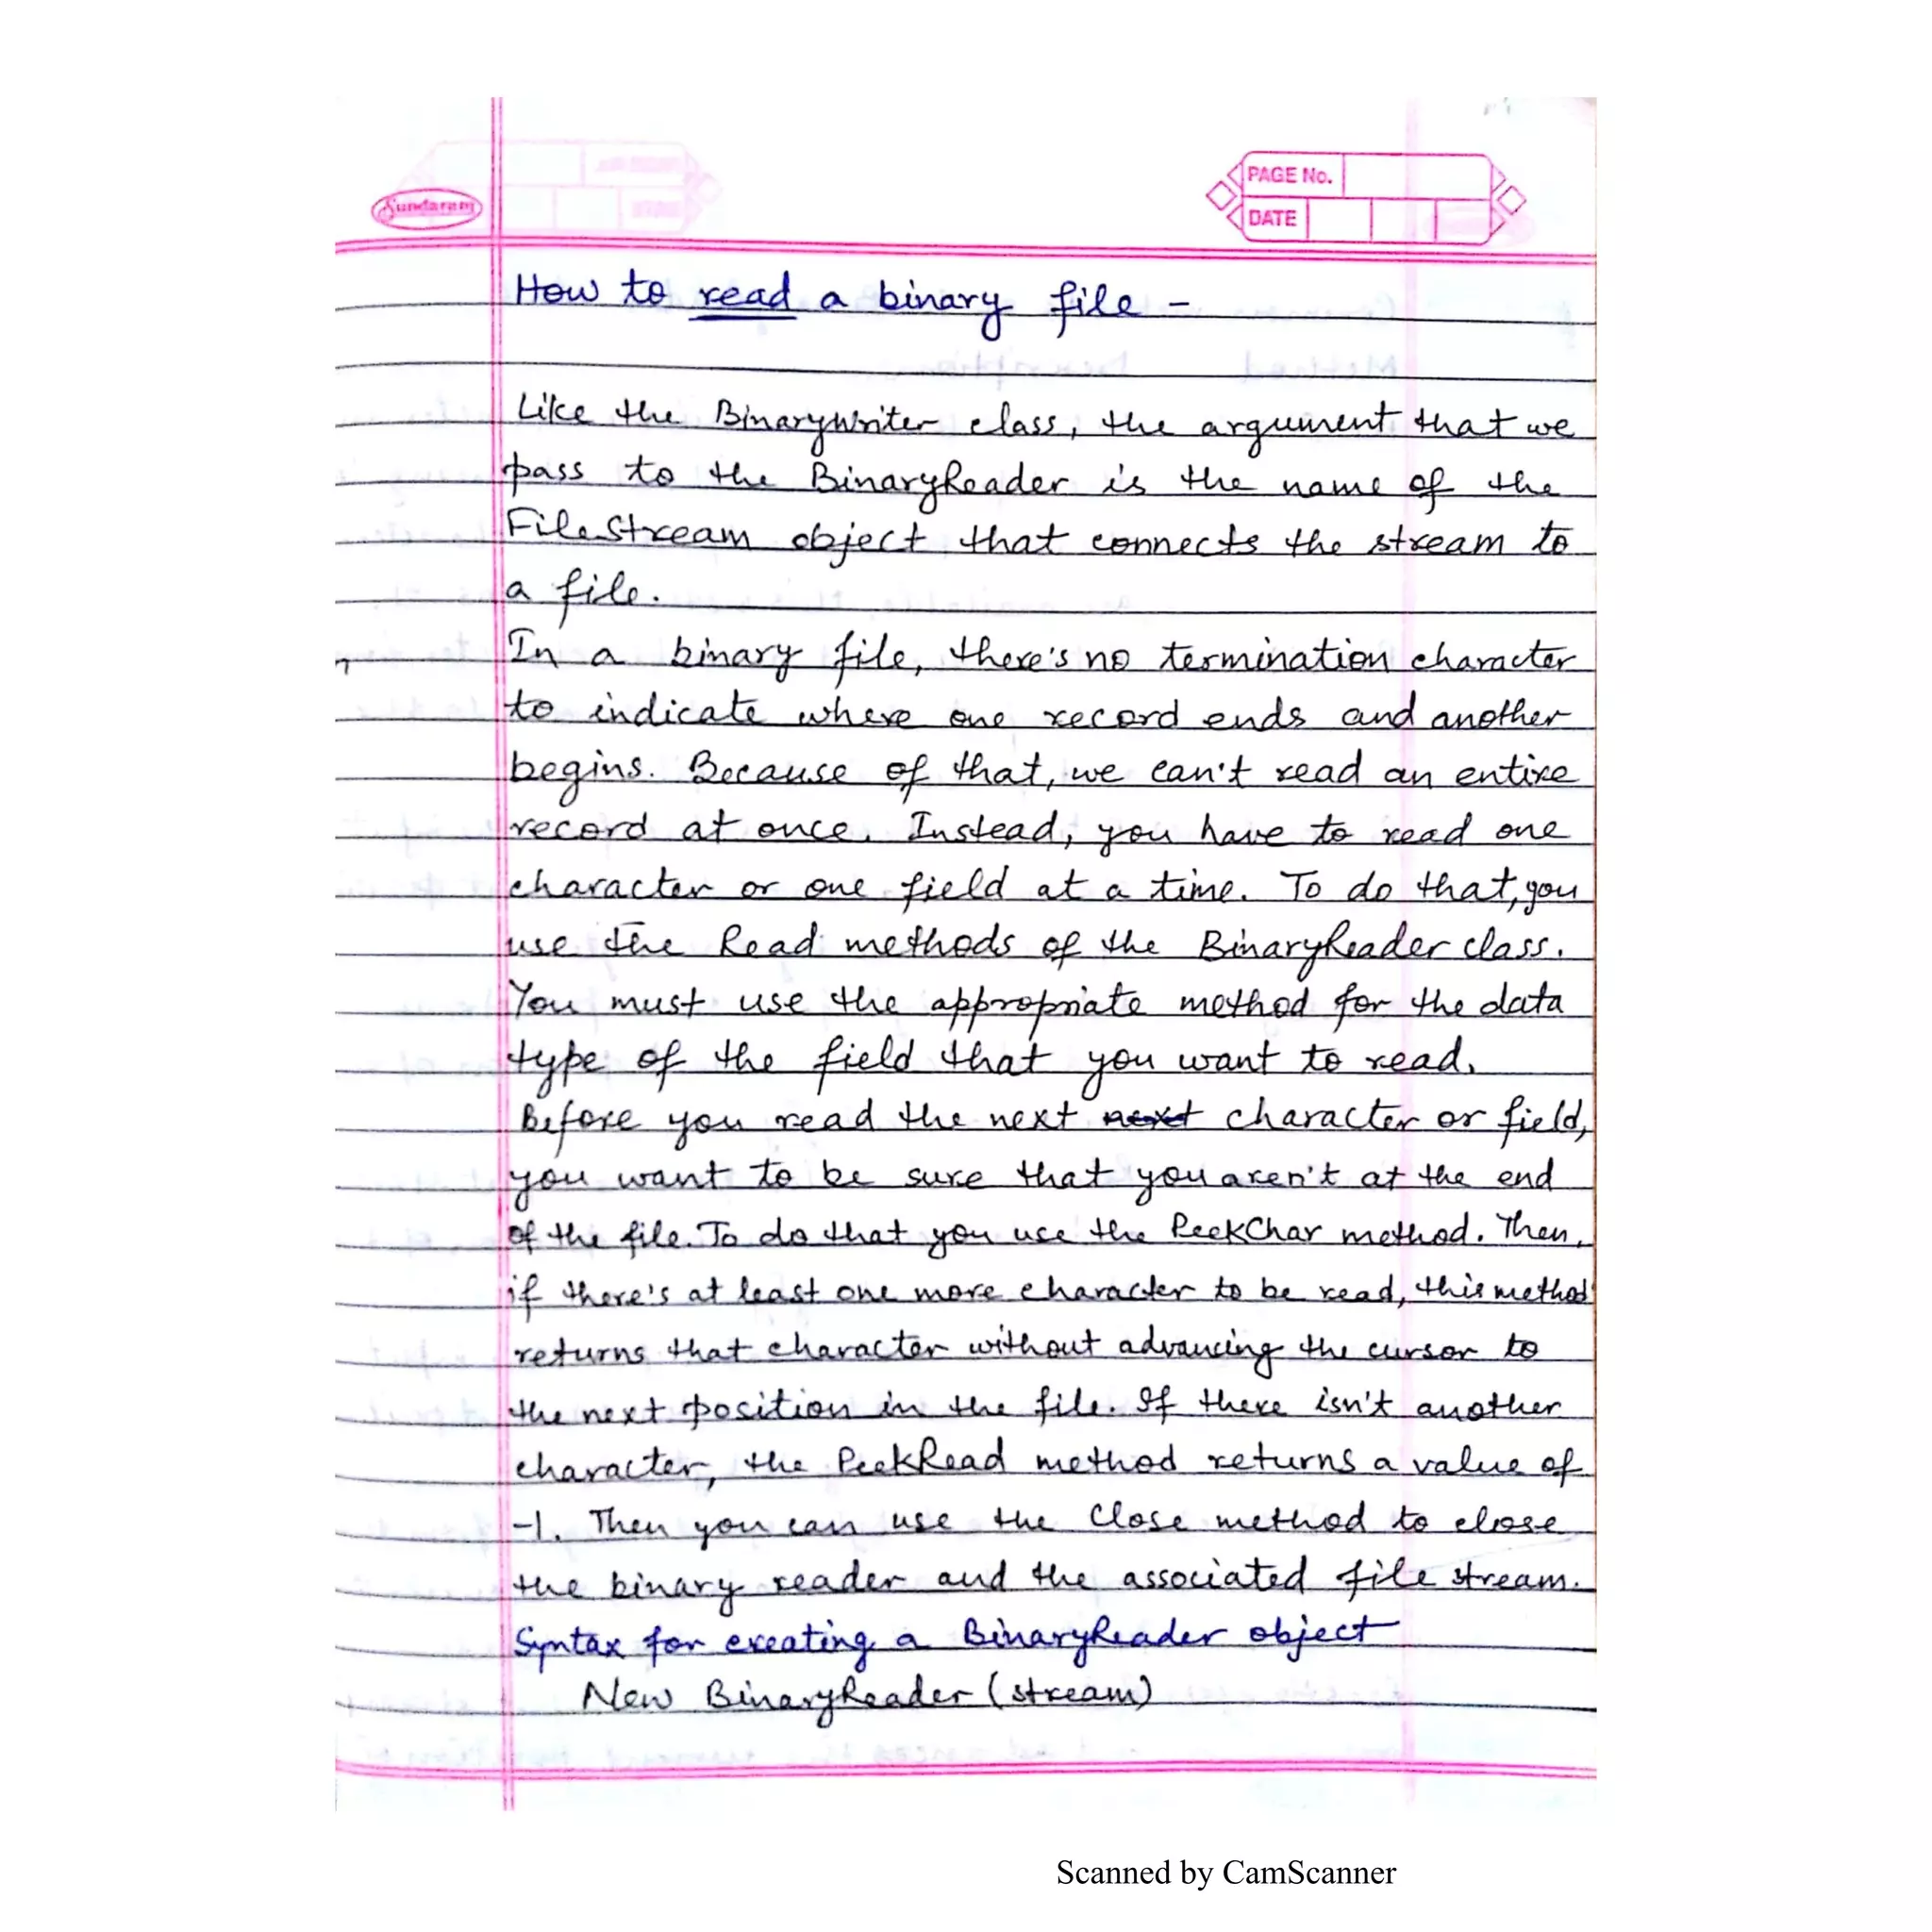 Sundaram
PAGE No.
DATE
How to read a binary file -
Like the BinaryWriter class, the argument that we
pass to the BinaryReader is the name of the
FileStream object that connects the stream to
a file.
In a binary file, there's no termination character
to indicate where one record ends and another
begins. Because of that, we can't read an entire
record at once. Instead, you have to read one
character or one field at a time. To do that, you
use the Read methods of the BinaryReader class.
You must use the appropriate method for the data
type of the field that you want to read.
Before you read the next next character or field,
you want to be sure that you aren't at the end
of the file. To do that you use the PeekChar method. Then,
if there's at least one more character to be read, this method
returns that character without advancing the cursor to
the next position in the file. If there isn't another
character, the PeekRead method returns a value of
-1. Then you can use the Close method to close
the binary reader and the associated file stream.
Syntax for creating a BinaryReader object
New BinaryReader (stream)
Scanned by CamScanner